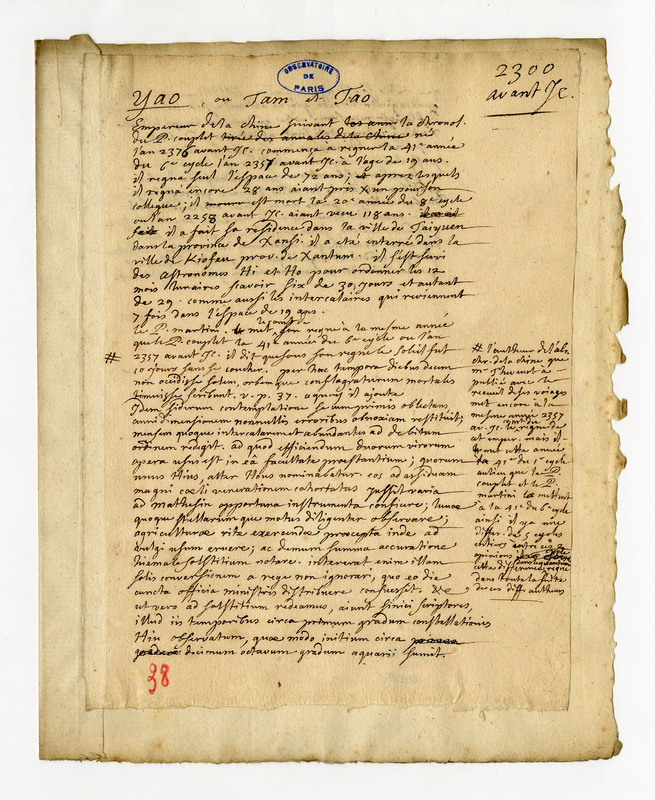 2300
avant JC.
OBSERVATOIRE
DE
PARIS
Yao, ou Tam et Tao
Empereur de la chine suivant les ann la chronol.
du P. couplet tirée des annales de la Chine né
l'an 2376 avant JC. commença a regner la 41e année
du 6e cycle l'an 2357 avant JC. à l'age de 19 ans.
il regna seul l'espace de 72 ans; et apres lesquels
il regna encore 28 ans aiant pris Xun pour son
collegue; il mourut est mort la 20e année du 8e cycle
ou l'an 2258 avant JC. aiant vecu 118 ans.
il a fait sa residence dans la ville de Taiyuen
dans la province de Xansi. il a eté interré dans la
ville de Kiofeu prov. de Xantum. il s'est servi
des Astronomes Hi et Ho pour ordonner les 12
mois lunaires sçavoir six de 30 jours et autant
de 29. comme aussi les intercalaires qui reviennent
7 fois dans l'espace de 19 ans.
le P. martini met son regne à la mesme année
que le P. couplet la 41e année du 6e cycle ou l'an
# 2357 avant JC. il dit que sous son regne le soleil fut
10 jours sans se coucher. per hac tempora diebus decem
non occidisse solem, orbemque conflagraturum mortales
timuisse scribunt. v. p. 37. a quoy il ajoute
Idem siderum contemplatione se cum primis oblectans,
anni dimensionem nonnullis erroribus obnoxiam restituit,
mensem quoque intercalarem et abundantes ad debitum
ordinem redegit. ad quod efficiendum duorum virorum
opera usus est in ea facultate praestantium; quorum
unus Hius, alter Hous nominabatur. eos ad assiduam
magni coeli venerationem cohortatus jussit varia
ad mathesin opportuna instrumenta conficere; lunae
quoque stellarumque motus diligenter observare;
agriculturae rite exercendae praecepta inde ad
vulgi usum eruere; ac demum summa accuratione
hiemale solstitium notare. intererat enim illam
solis conversionem a rege non ignorari, quo eo die
cuncta officia ministris distribuere consuessit. &c
et vero ad solstitium redeamus, aiunt sinici scriptores,
illud iis temporibus circa primum gradum constellationis
Hiu observatum, quae modo initium circa
gradum decimum octavum gradum aquarii sumit.
# l'autheur de l'abr.
chr. de la chine que
mr Thevenot a
publié avec le
recueil de ses voiages
met encore à la
mesme année 2357
av. JC. le regne de
cet emper. mais il
met cette année
la 41e du 1er cycle
au lieu que le P.
couplet et le P.
martini la mettent
a la 41e du 6e cycle
ainsi il y a une
differ. de 5 cycles
entiers entre ces 2
opinions
cette difference regne
dans toute la suitte
de ces diff. autheurs
38